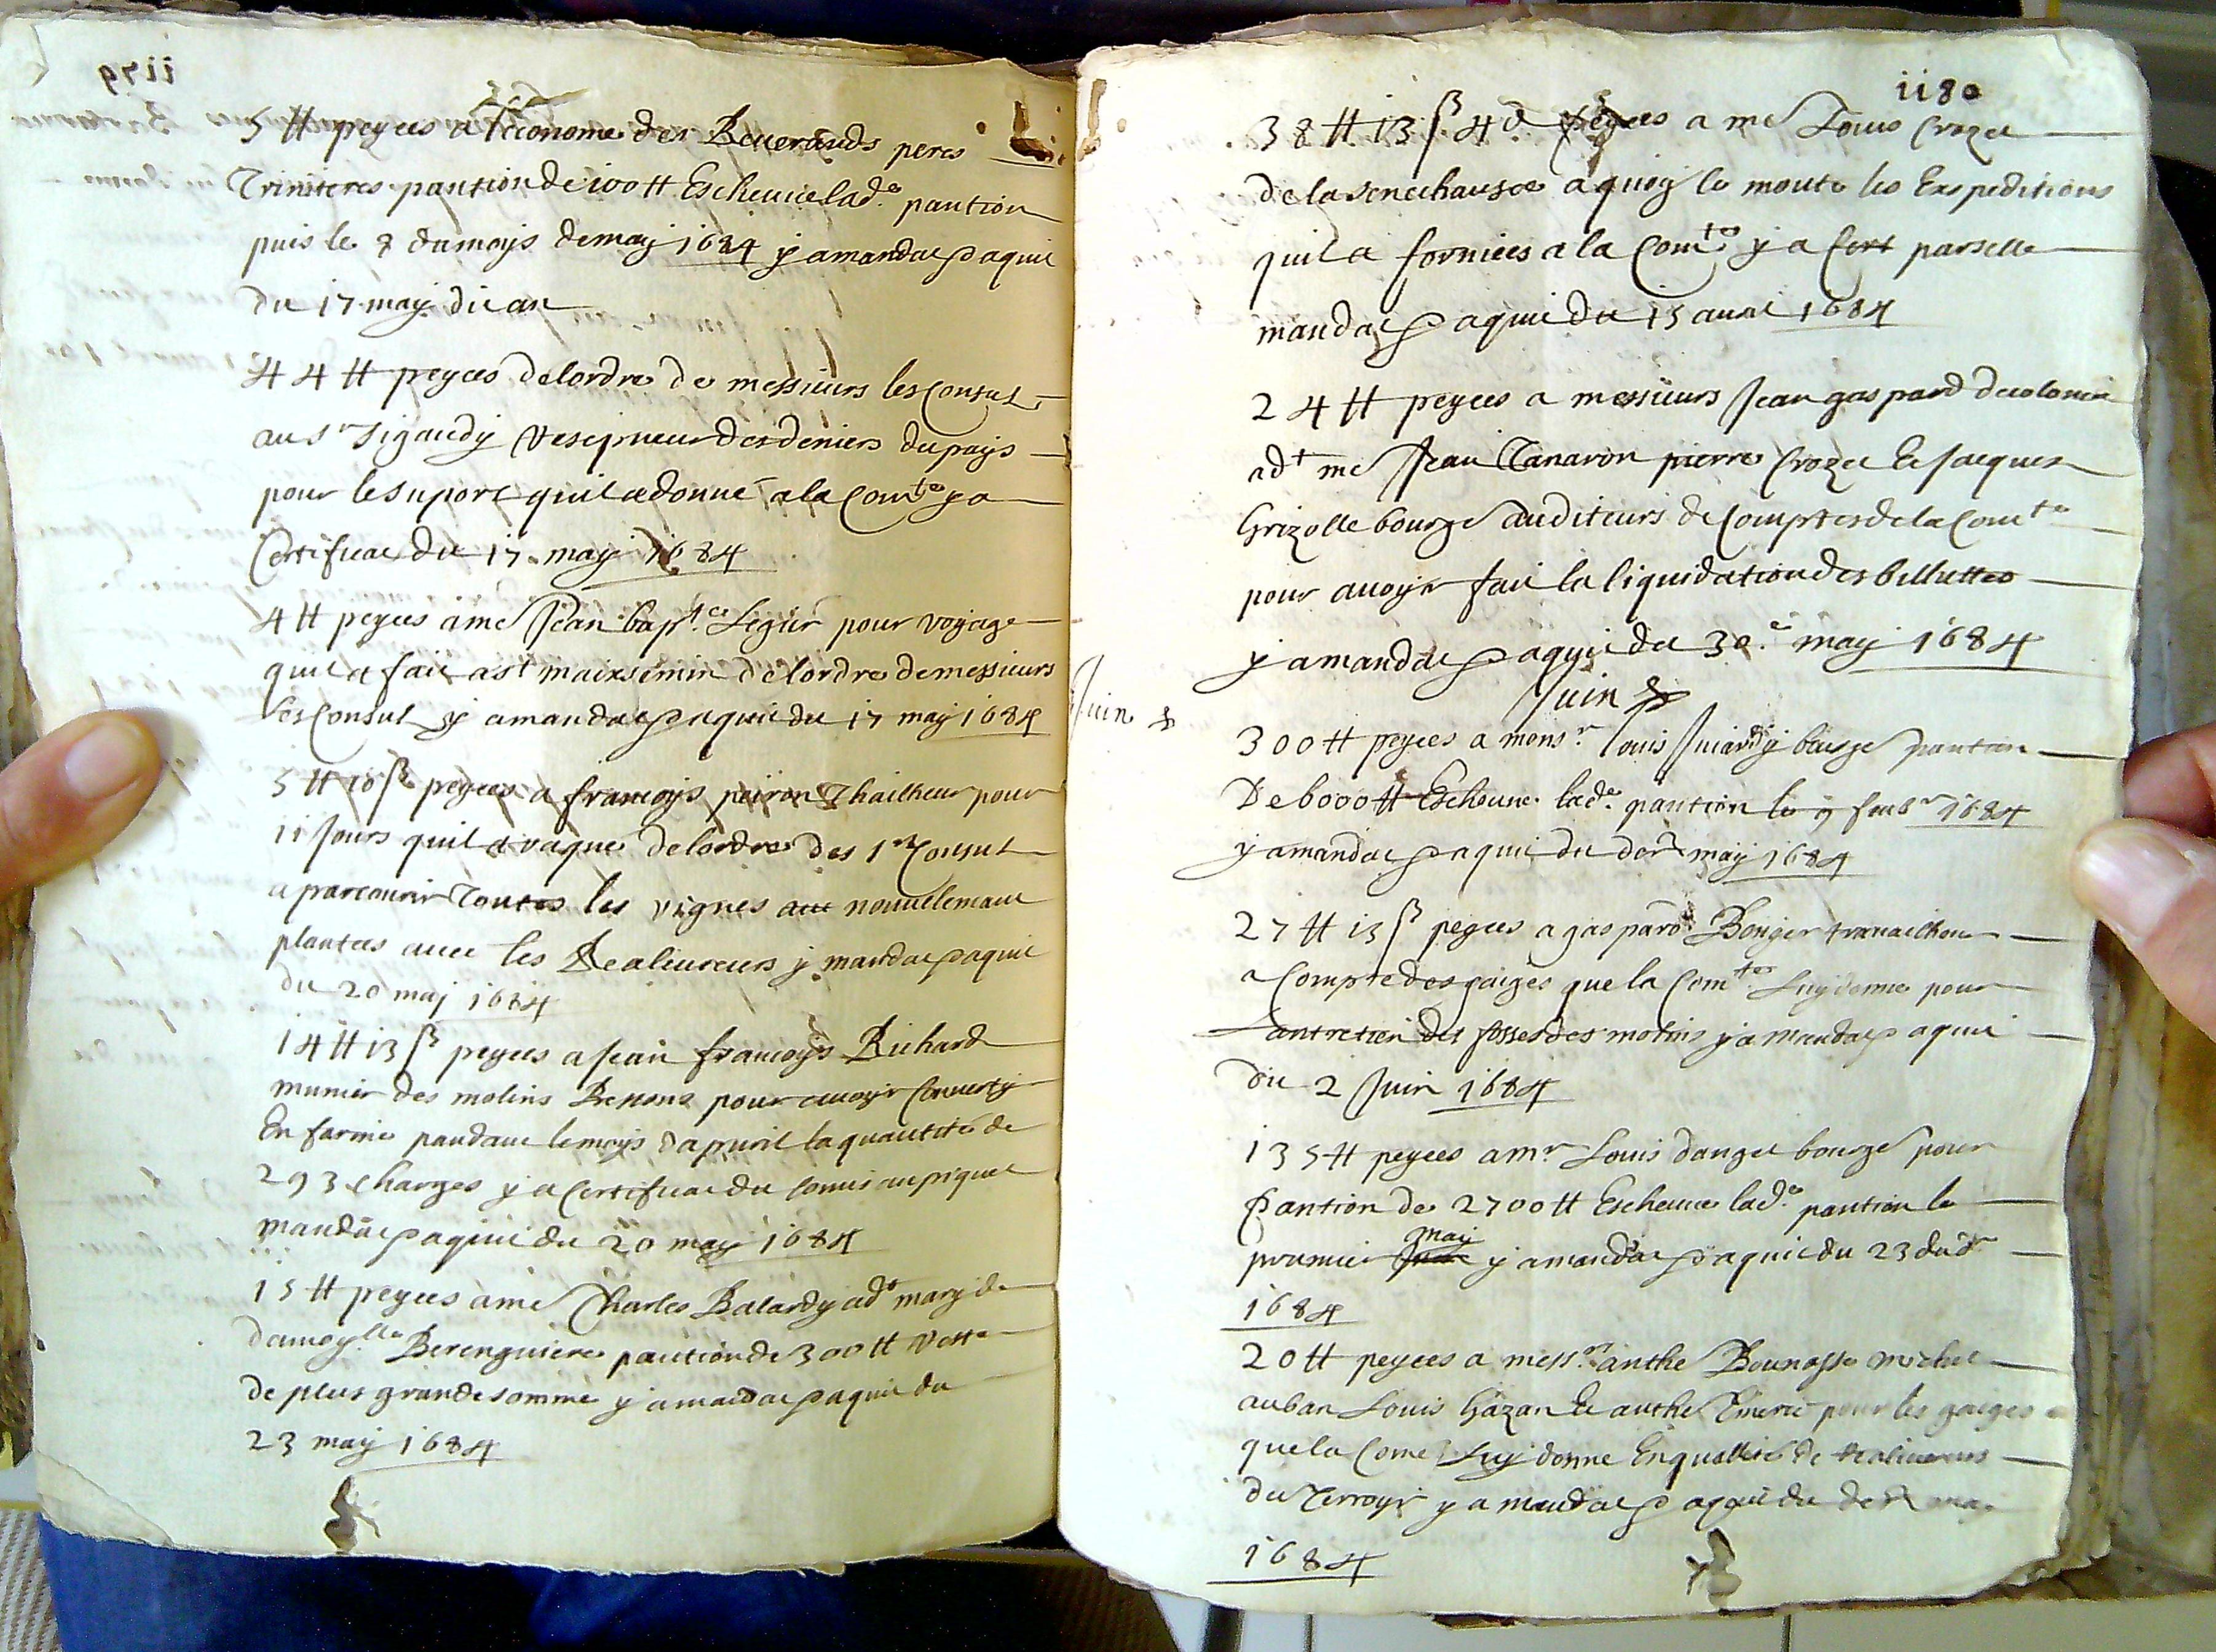 1179
5 ₶ peyees a l'econome des Reuerands peres
Triniteres pantion de 100 ₶ Escheuie lad.e pantion
puis le 8 du moys de may 1684 y a mandat aquit
du 17 may dit an
44 ₶ peyees de lordre de messieurs les Consuls
au sr Sigaudy des deniers du pays
pour le suport quil a donné a la Comte y a
Certificat du 17 may 1684
4 ₶ peyees a me Jean bapte Segur pour voyage
quil a fait a st maixsemin de lordre de messieurs
les Consuls y a mandat aquit du 17 may 1684
5 ₶ 10 ß peyees a francoys peiron Thailheur pour
11 Jours quil a vaque de lordre des srs Consuls
a parcourir Toutes les vignes nouuelemant
plantees auec les Realiureurs y mandat aquit
du 20 maj 1684
14 ₶ 13 ß peyees a Jean francoys Richard
munier des molins pour auoyr Conuerty
En farine pandant le moys dapuril la quantité de
293 Charges y a Certificat du Comis au piquet
mandat aquit du 20 may 1684
15 ₶ peyees a me Charles Balardy adt mary de
damoylle Berenguiere pantion de 300 ₶ Reste
de plus grande somme y a mandat aquit du
23 may 1684
1180
38 ₶ 13 ß 4 d peyees a me Louis Crozet
de la senechausee a quoy le monte les Expeditions
quil a fornies a la Comte y a Cert parselle
mandat aquit du 15 auril 1684
24 ₶ peyees a messieurs Jean gaspard decolonia
adt me Jean Tanaron pierre Crozet Et Jacques
Grizolle bourge auditeurs de Comptes de la Comte
pour auoyr fait la liquidation des billettes
y a mandat aquit du 30.e may 1684
Juin
Juin
300 ₶ peyees a monsr Louis Juiardy bourge pantion
De 6000 ₶ Escheue lad.e pantion le 9 feubr 1684
y a mandat aquit du der may 1684
27 ₶ 13 ß peyees a gaspard Bonger trauailheur
a Compte des gaiges que la Comte Luy donne pour
Lantretien des fosses des molins y a mandat aquit
du 2 Juin 1684
135 ₶ peyees a mr Louis danget bourge pour
pantion de 2700 ₶ Escheue lad.e pantion le
prumier may y a mandat aquit du 23 dud
1684
20 ₶ peyees a messrs anthe Bounasse michel
auban Louis Gazan Et anthe Emeric pour les gaiges
que la Come Luy donne En quallité de Realiureurs
du Terroyr y a mandat aquit du der may
1684